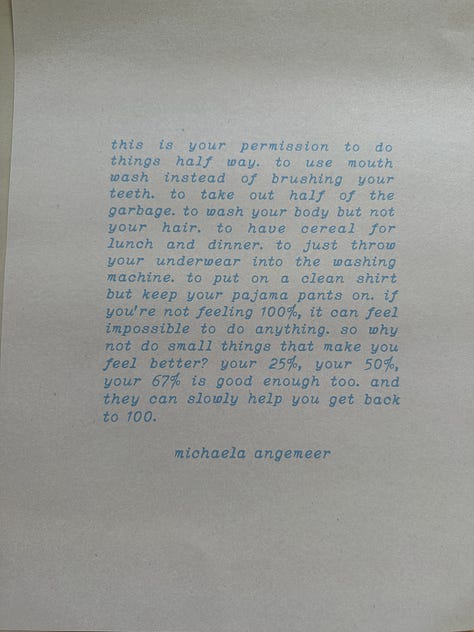 this is your permission to do
things half way. to use mouth
wash instead of brushing your
teeth. to take out half of the
garbage. to wash your body but not
your hair. to have cereal for
lunch and dinner. to just throw
your underwear into the washing
machine. to put on a clean shirt
but keep your pajama pants on. if
you're not feeling 100%, it can feel
impossible to do anything. so why
not do small things that make you
feel better? your 25%, your 50%,
your 67% is good enough too. and
they can slowly help you get back
to 100.
michaela angemeer